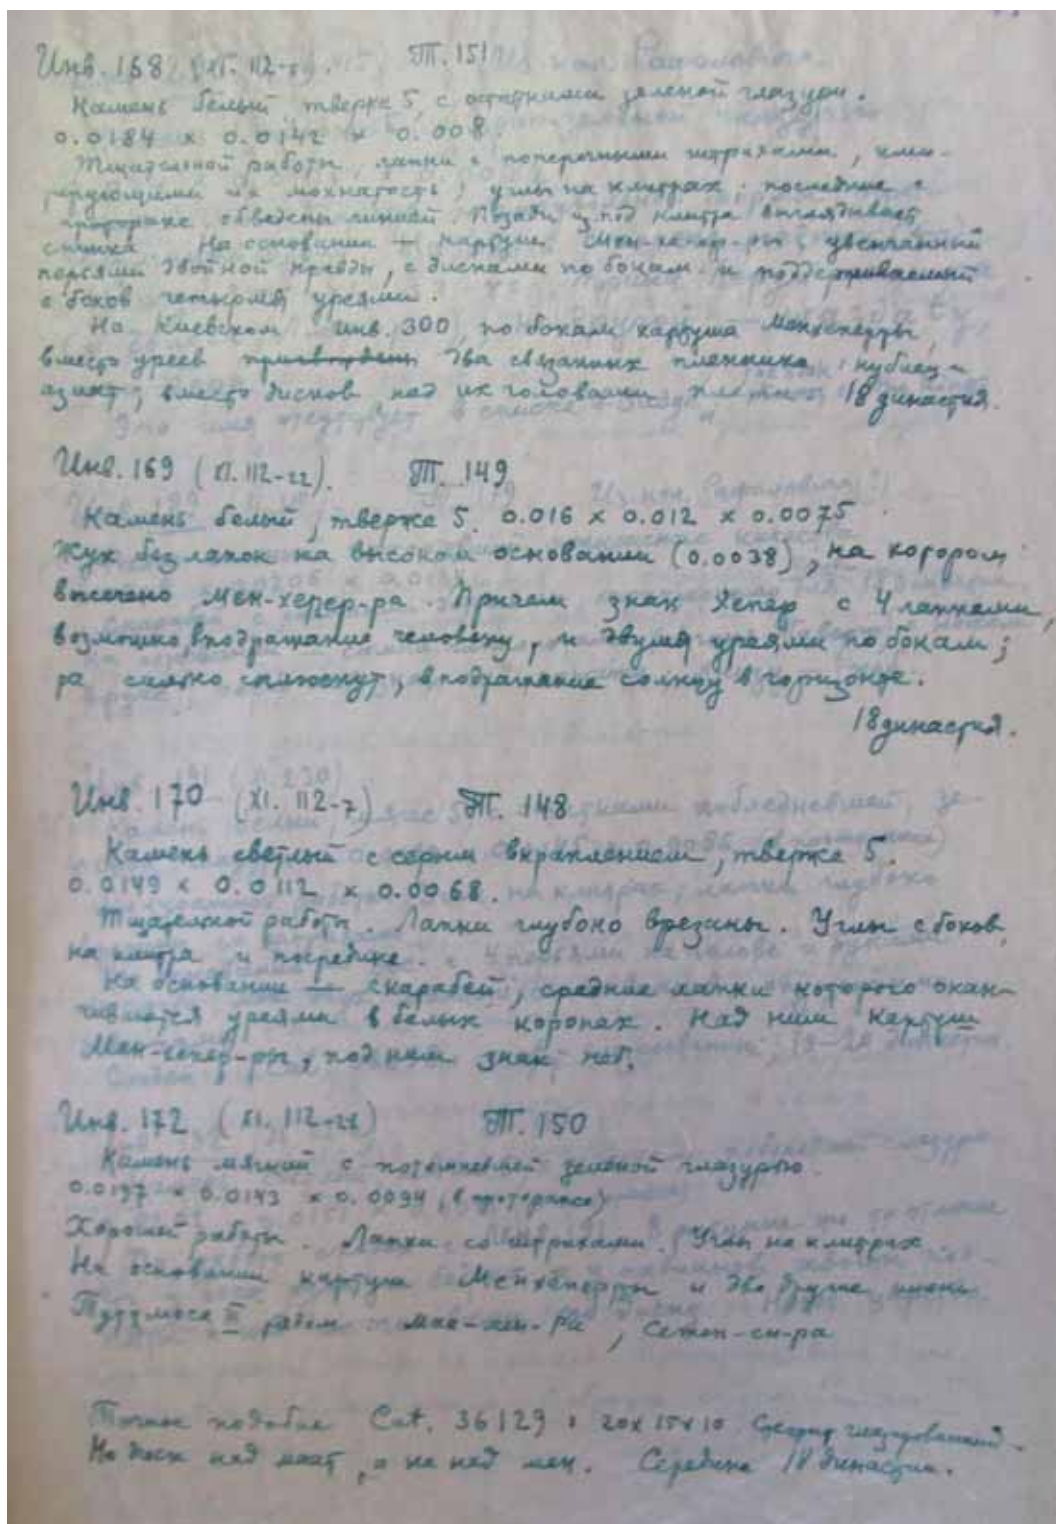 Инв. 168 (XI. 112-5). Т. 151
Камень белый, тверже 5, с остатками зеленой глазури.
0.0184 x 0.0142 x 0.008.
Тщательной работы, лапки с поперечными штрихами, ими-
тирующими их мохнатость; углы на клитрах; последние с
протораксе обведены линией. Позади из под клитра выглядывает
спинка. На основании — картуш Мен-хепер-ры, увенчанный
перьями двойной правды, с дисками по бокам и поддерживаемый
с боков четырмя уреями.
На Киевском инв. 300, по бокам картуша Менхеперры,
вместо уреев два связаных пленника: нубиец и
азиат; вместо дисков над их головами 18 династия.
Инв. 169 (XI. 112-22). Т. 149
Камень белый, тверже 5. 0.016 x 0.012 x 0.0075.
Жук без лапок на высоком основании (0.0038), на котором
высечено мен-хепер-ра. Причем знак Хепер с 4 лапками,
возможно, в подражание человеку, и двумя уреями по бокам;
ра сильно сплюснут, в подражание солнцу в горизонте.
18 династия.
Инв. 170 (XI. 112-7) Т. 148
Камень светлый с серым вкраплением, тверже 5.
0.0149 x 0.0112 x 0.0068.
Тщательной работы. Лапки глубоко врезаны. Углы с боков,
на клитра и посредине.
На основании — скарабей, средние лапки которого окан-
чиваются уреями в белых коронах. Над ним картуш
Мен-хепер-ры, под ним знак неб.
Инв. 172 (XI. 112-28) Т. 150
Камень мягкий с потемневшей зеленой глазурью.
0.0197 x 0.0143 x 0.0094 (в протораксе)
Хорошей работы. Лапки со штрихами. Углы на клитрах.
На основании картуш Менхеперры и два другие имени
Тутмоса III рядом -хеп-Ра, Сетеп-ен-ра
Точное подобие Cat. 36129: 20x15x10 глазированный.
Но диск над маат, а не над мен. Середина 18 династии.